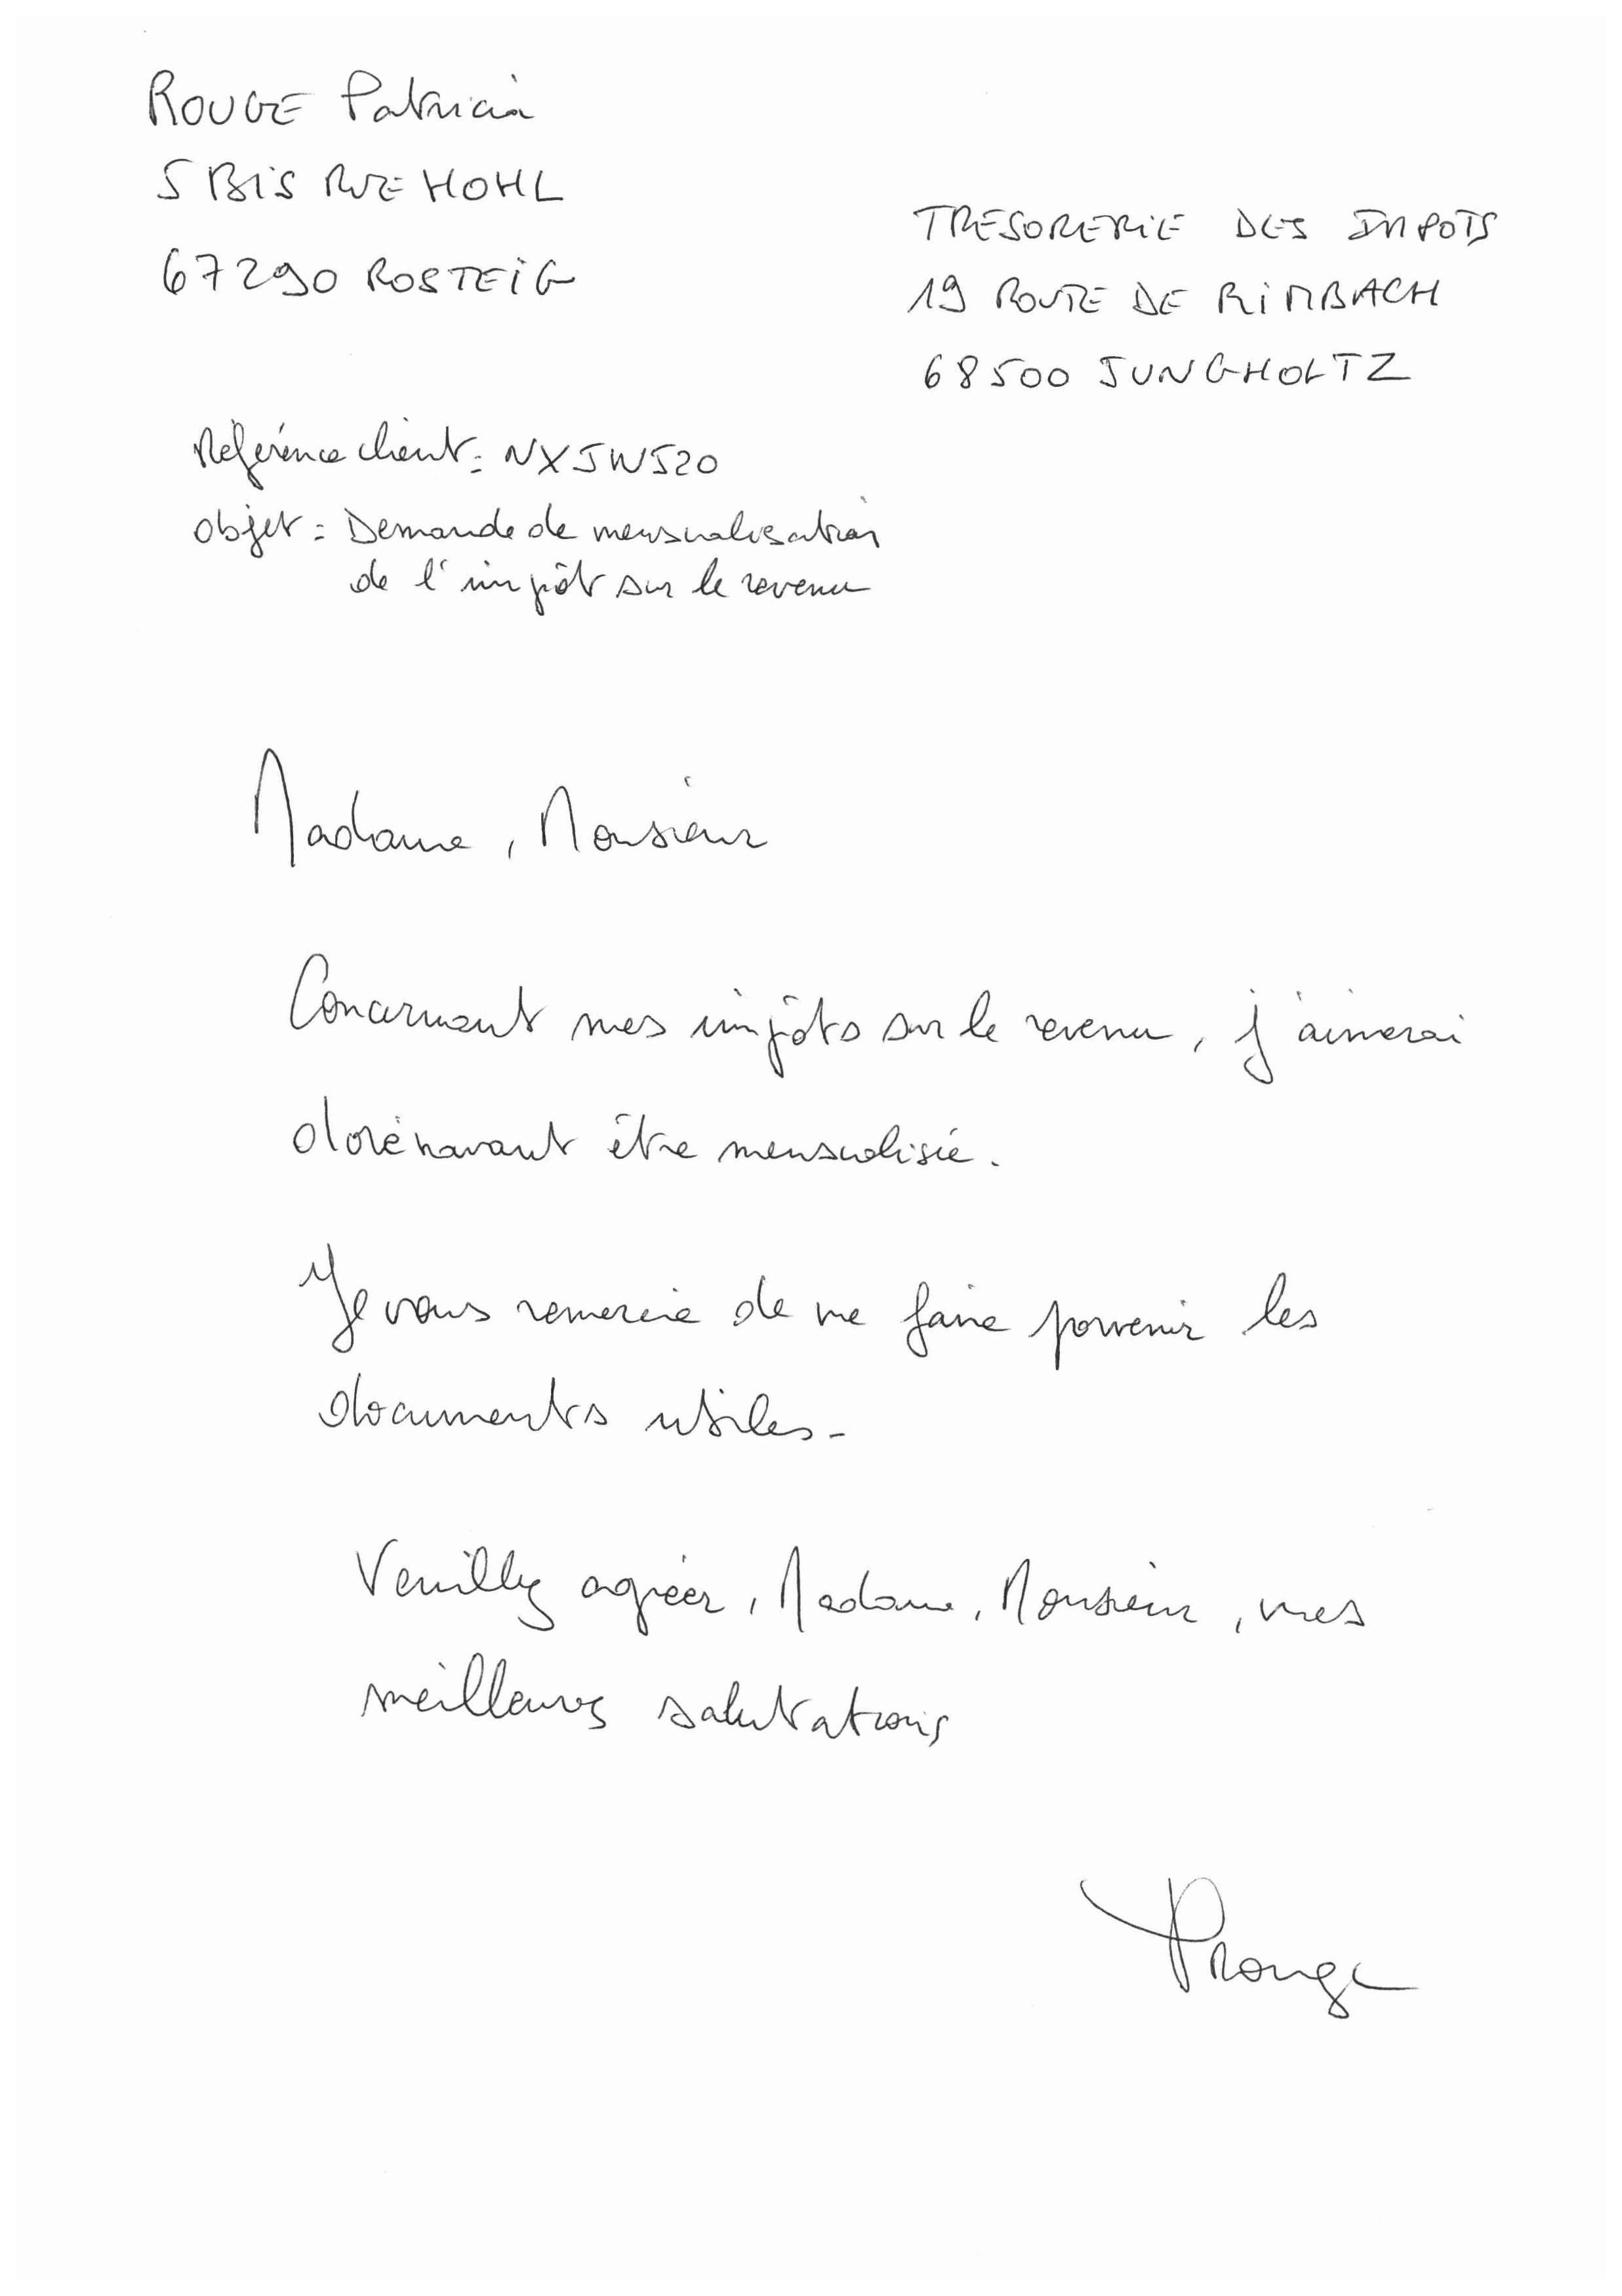 ROUGE Patricia
5 BIS RUE HOHL
67290 ROSTEIG
TRESORERIE DES IMPOTS
19 ROUTE DE RIMBACH
68500 JUNGHOLTZ
Référence client : NXJWJ20
Objet : Demande de mensualisation
de l'impôt sur le revenu
Madame, Monsieur
Concernant mes impôts sur le revenu, j'aimerai
dorénavant être mensualisée.
Je vous remercie de me faire parvenir les
documents utiles.
Veuillez agréer, Madame, Monsieur, mes
meilleures salutations
PRouge